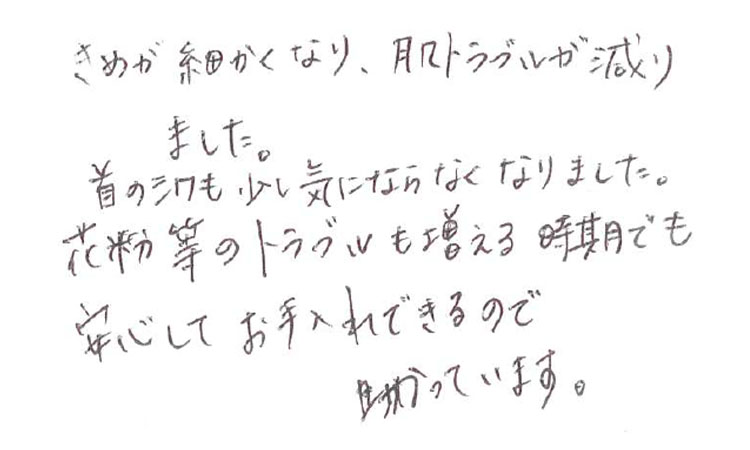 きめが細かくなり、肌トラブルが減り
ました。
首のシワも少し気にならなくなりました。
花粉等のトラブルも増える時期でも
安心してお手入れできるので
助かっています。